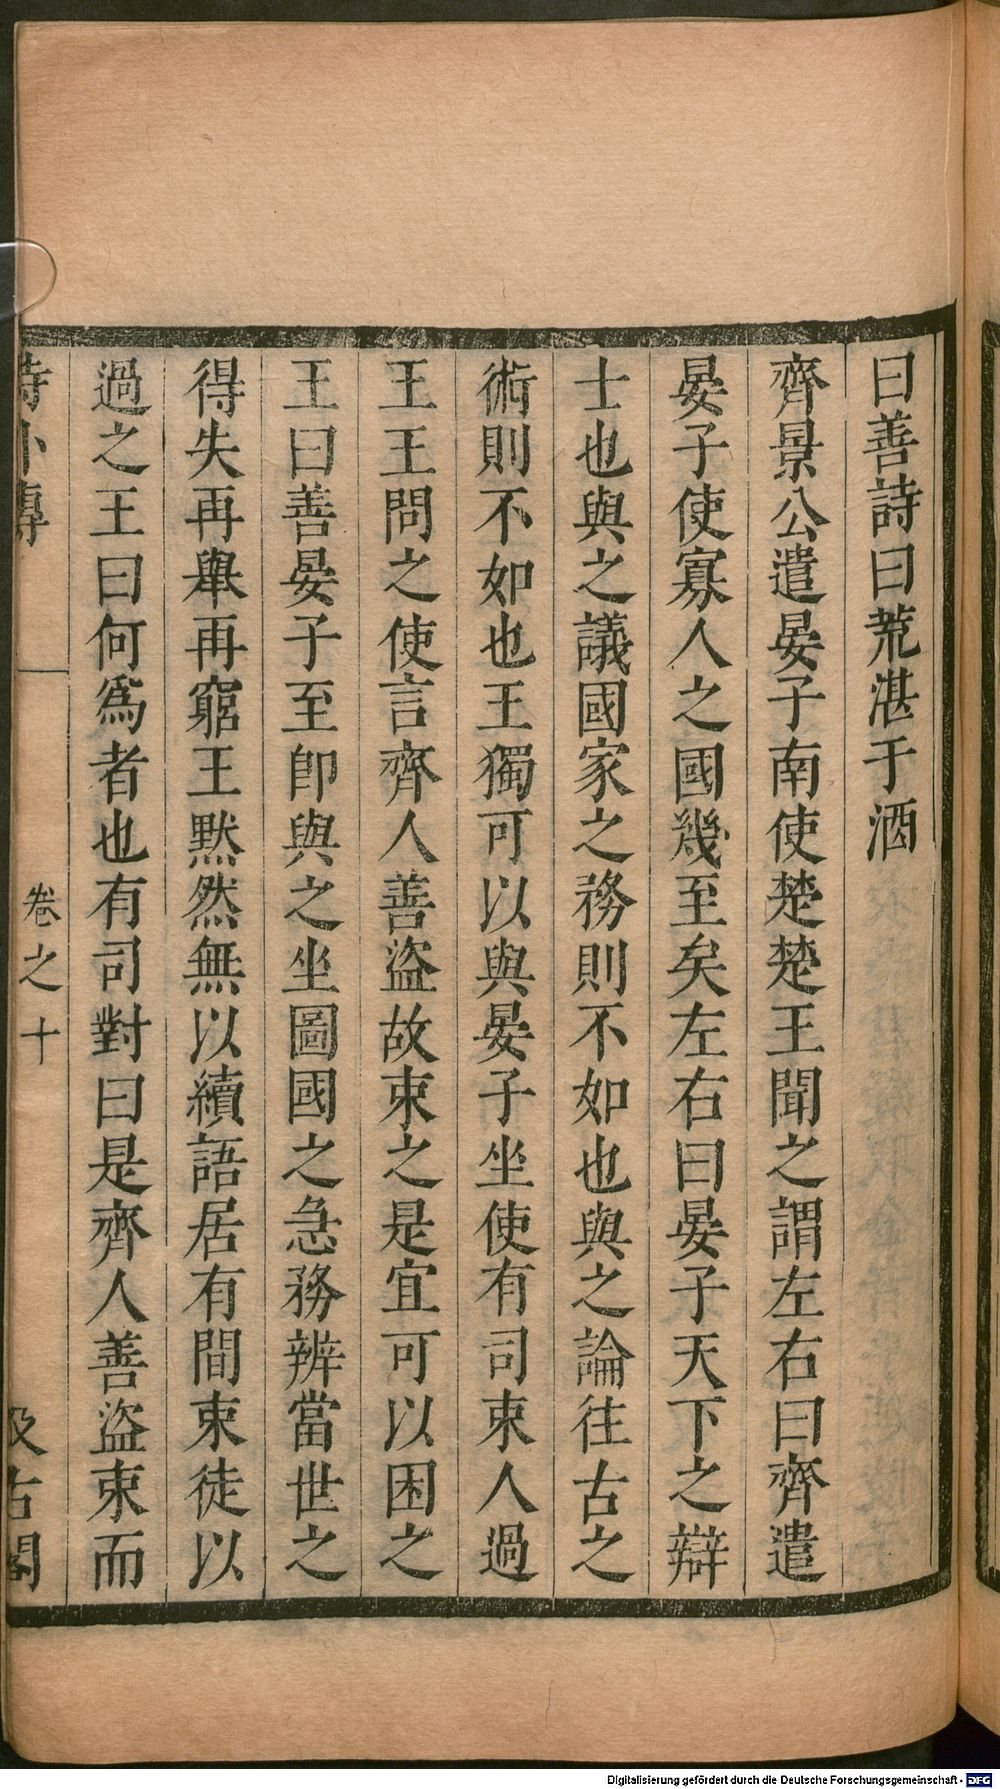 曰善詩曰荒湛于酒
齊景公遣晏子南使楚楚王聞之謂左右曰齊遣
晏子使寡人之國幾至矣左右曰晏子天下之辯
士也與之議國家之務則不如也與之論往古之
術則不如也王獨可以與晏子坐使有司束人過
王王問之使言齊人善盜故束之是宜可以困之
王曰善晏子至卽與之坐圖國之急務辨當世之
得失再舉再窮王默然無以續語居有間束徒以
過之王曰何爲者也有司對曰是齊人善盜束而
詩外傳 卷之十 汲古閣
Digitalisierung gefördert durch die Deutsche Forschungsgemeinschaft - DFG